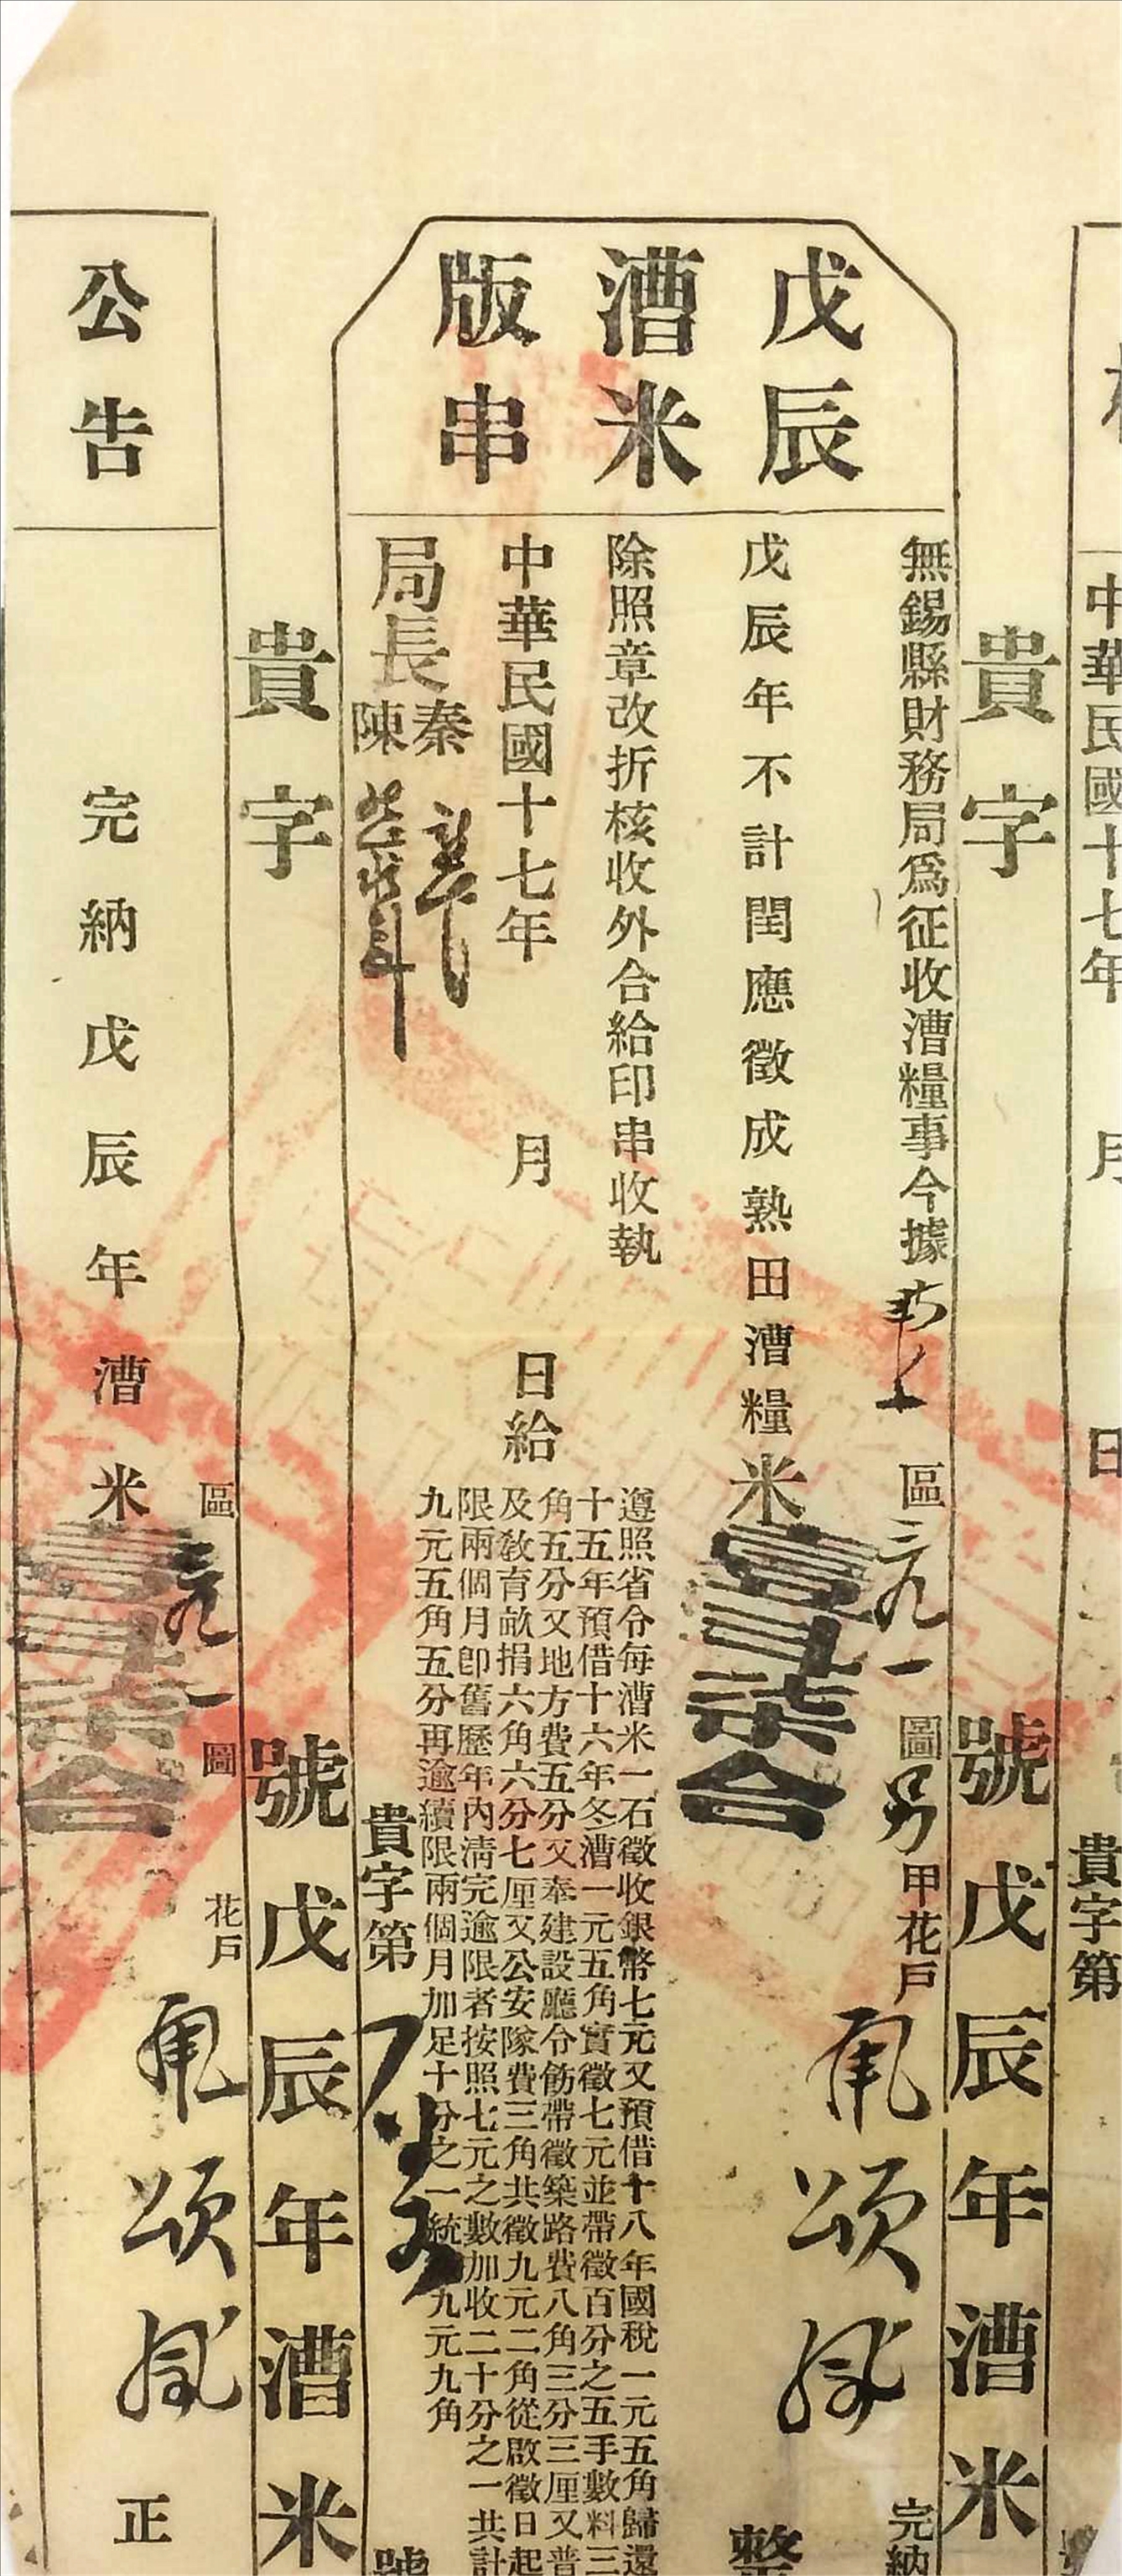 中華民國十七年 月 日
貴字第
貴字 號戊辰年漕米
戊辰
漕米
版串
無錫縣財務局爲征收漕糧事今據 區 一圖 甲花戶 頌 完納
戊辰年不計閏應徵成熟田漕糧米壹斗柒合 整
除照章改折核收外合給印串收執
遵照省令每漕米一石徵收銀幣七元又預借十八年國稅一元五角歸還
十五年預借十六年冬漕一元五角實徵七元並帶徵百分之五手數料三
角五分又地方費五分又奉建設廳令飭帶徵築路費八角三分三厘又普
及敎育畝捐六角六分七厘又公安隊費三角共徵九元二角從啟徵日起
限兩個月即舊歷年內清完逾限者按照七元之數加收二十分之一共計
九元五角五分再逾續限兩個月加足十分之一統 九元九角
中華民國十七年 月 日給
局長 秦 陳
貴字第 號
貴字 號戊辰年漕米
公告
區 一圖 花戶 頌
完納戊辰年漕米壹斗柒合 正